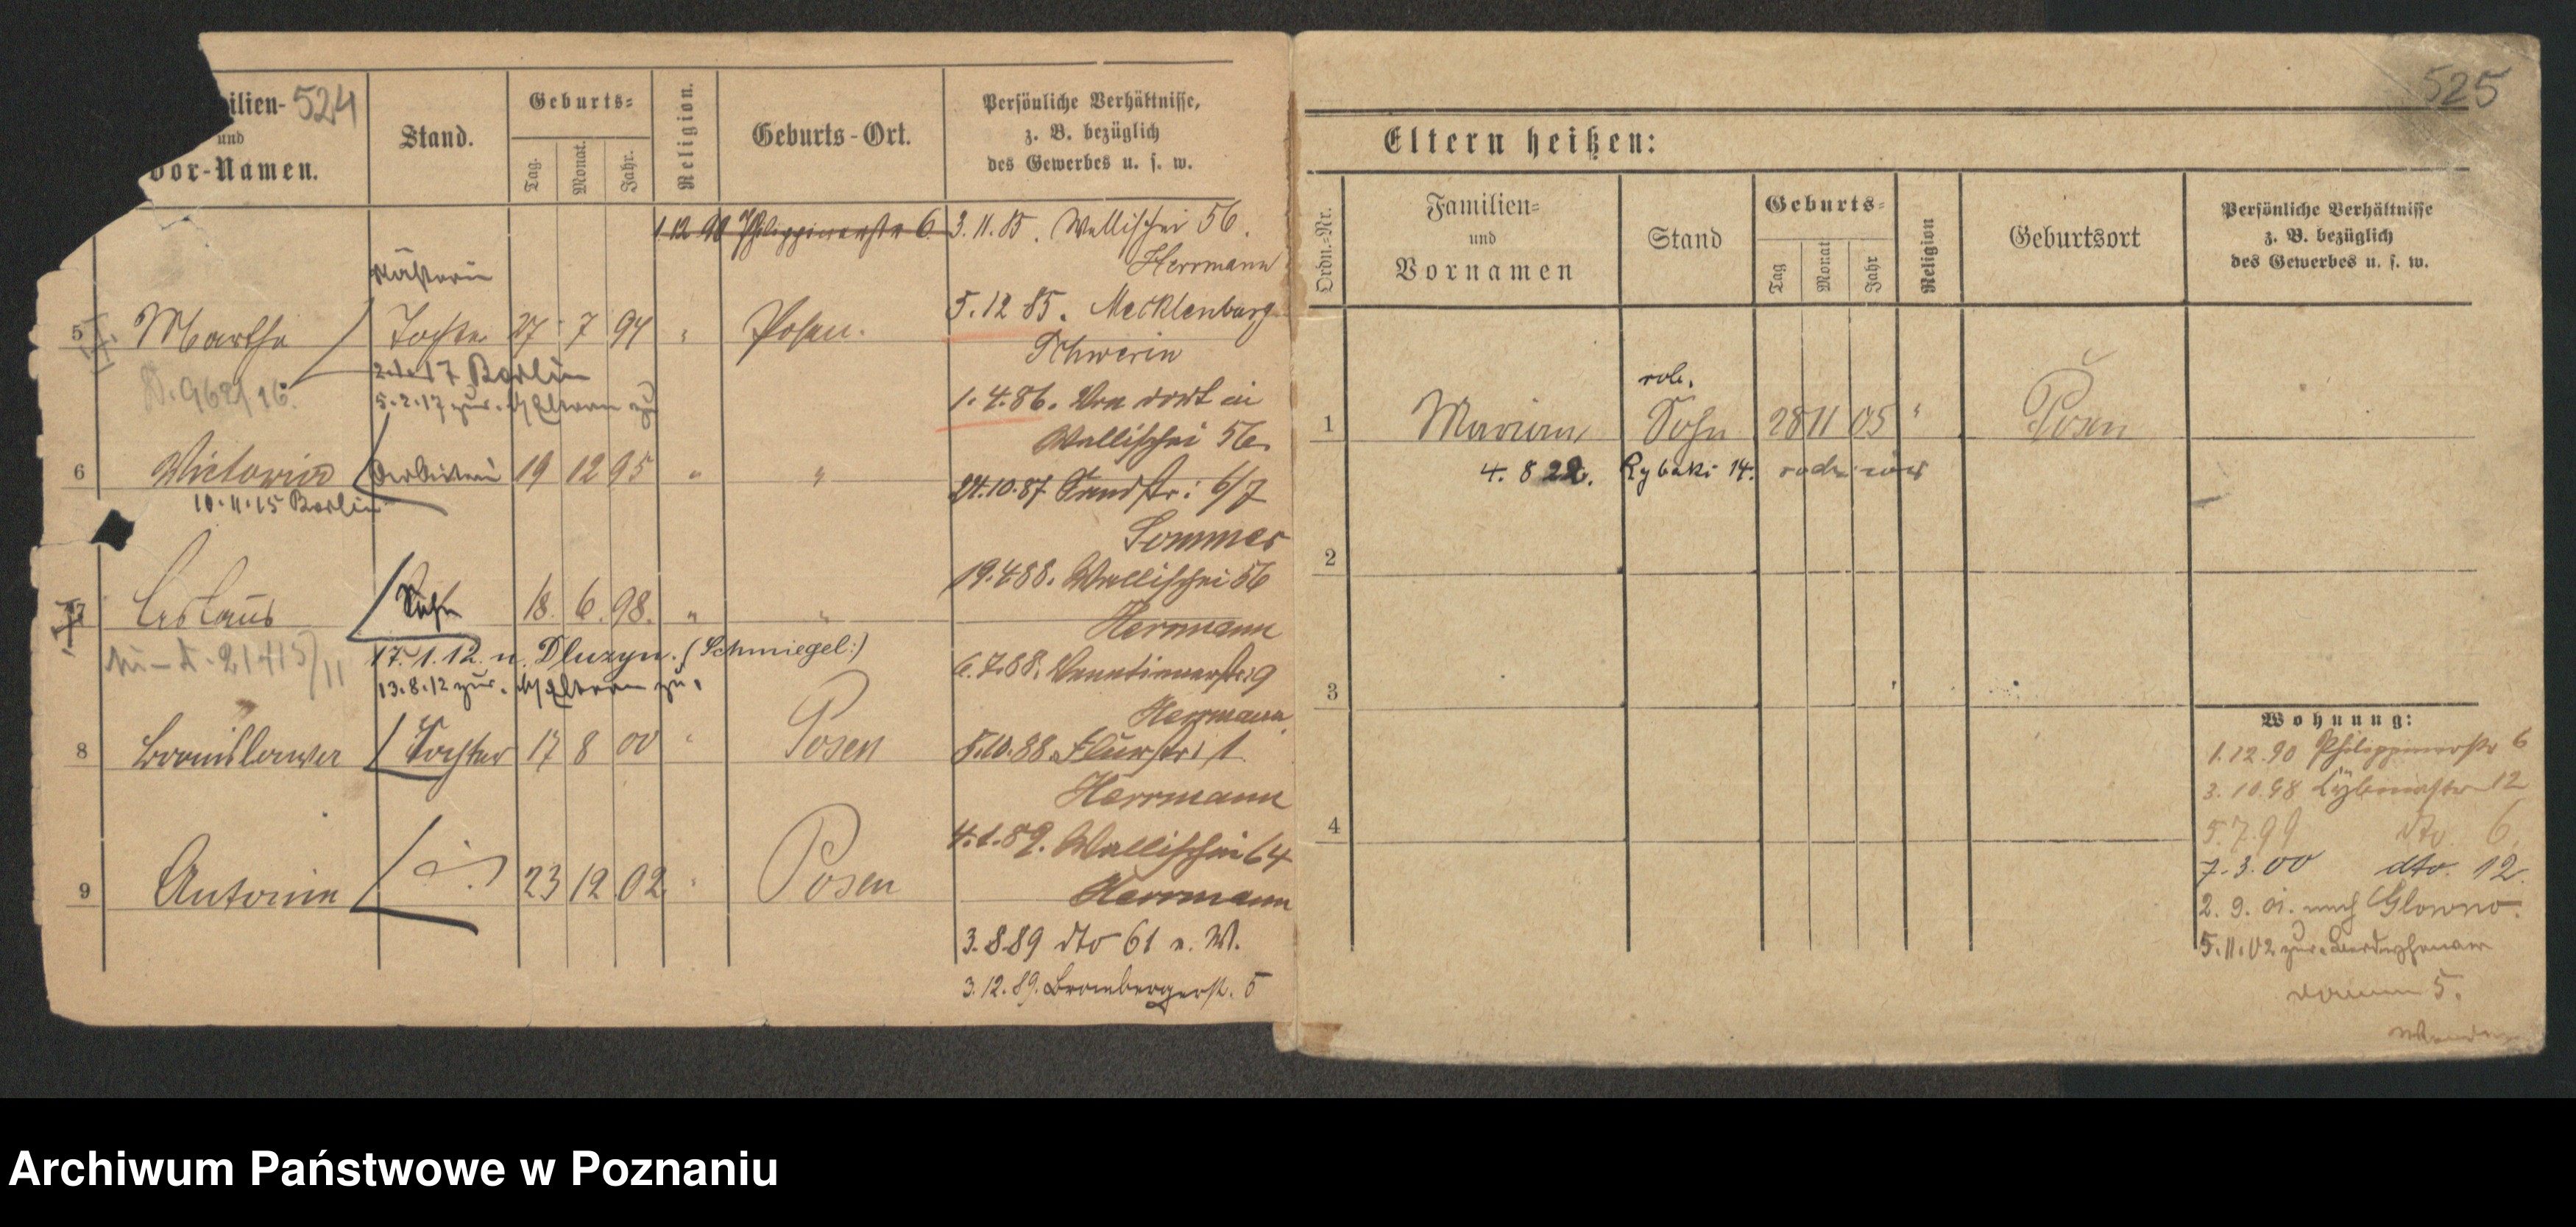 524
ilien-
und
Vor-Namen.
Stand.
Geburts-
Tag.
Monat.
Jahr.
Religion.
Geburts-Ort.
Persönliche Verhältnisse,
z. B. bezüglich
des Gewerbes u. s. w.
1.12.90 Philippinerstr 6.
3.11.85. Wallischei 56.
Herrmann
Näherin
5 Martha Tochter 27 7 94 " Posen.
5.12 85. Mecklenburg
Schwerin
17 Berlin
5.2.17 zur. Eltern zu
1.4.86. Von dort in
Wallischei 56.
6 Victoria Arbeiterin 19 12 95 " "
10.11.15 Berlin
24.10.87 Sandstr: 6/7
Sommer
19.4.88. Wallischei 56
7 Ceslaus Sohn 18. 6. 98. " "
Herrmann
17.1.12. n. Dluzyn. (Schmiegel:)
13.8.12 zur. Eltern zu.
6.7.88. Venetianerstr. 9
Herrmann
8 Bronislawa Tochter 17 8 00 " Posen
5.10.88. Flurstr: 1.
Herrmann
4.1.89. Wallischei 64
9 Antonie 23 12 02 " Posen
Herrmann
3.8.89 dto 61 n. W.
3.12.89. Brombergerst. 5
525
Eltern heißen:
Ordn.-Nr.
Familien-
und
Vornamen
Stand
Geburts-
Tag
Monat
Jahr
Religion
Geburtsort
Persönliche Verhältnisse
z. B. bezüglich
des Gewerbes u. s. w.
rob.
1 Marian Sohn 28 11 05 " Posen
4. 8 22. Rybaki 14.
2
3
4
Wohnung:
1.12.90 Philippinerstr 6
3.10.98 Cybinastr 12
5.7.99 dto. 6.
7.3.00 dto. 12.
2. 9. 01. nach Glowno.
5.11.02 zur.
5.
Archiwum Państwowe w Poznaniu